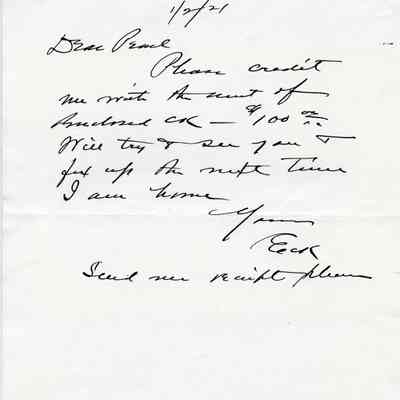 1/2/21
Dear Pearl
Please credit
me with the amt of
Enclosed ck — $100 00/xx
Will try & see you &
fix up the next time
I am home
Yours
Eck
Send me receipt please